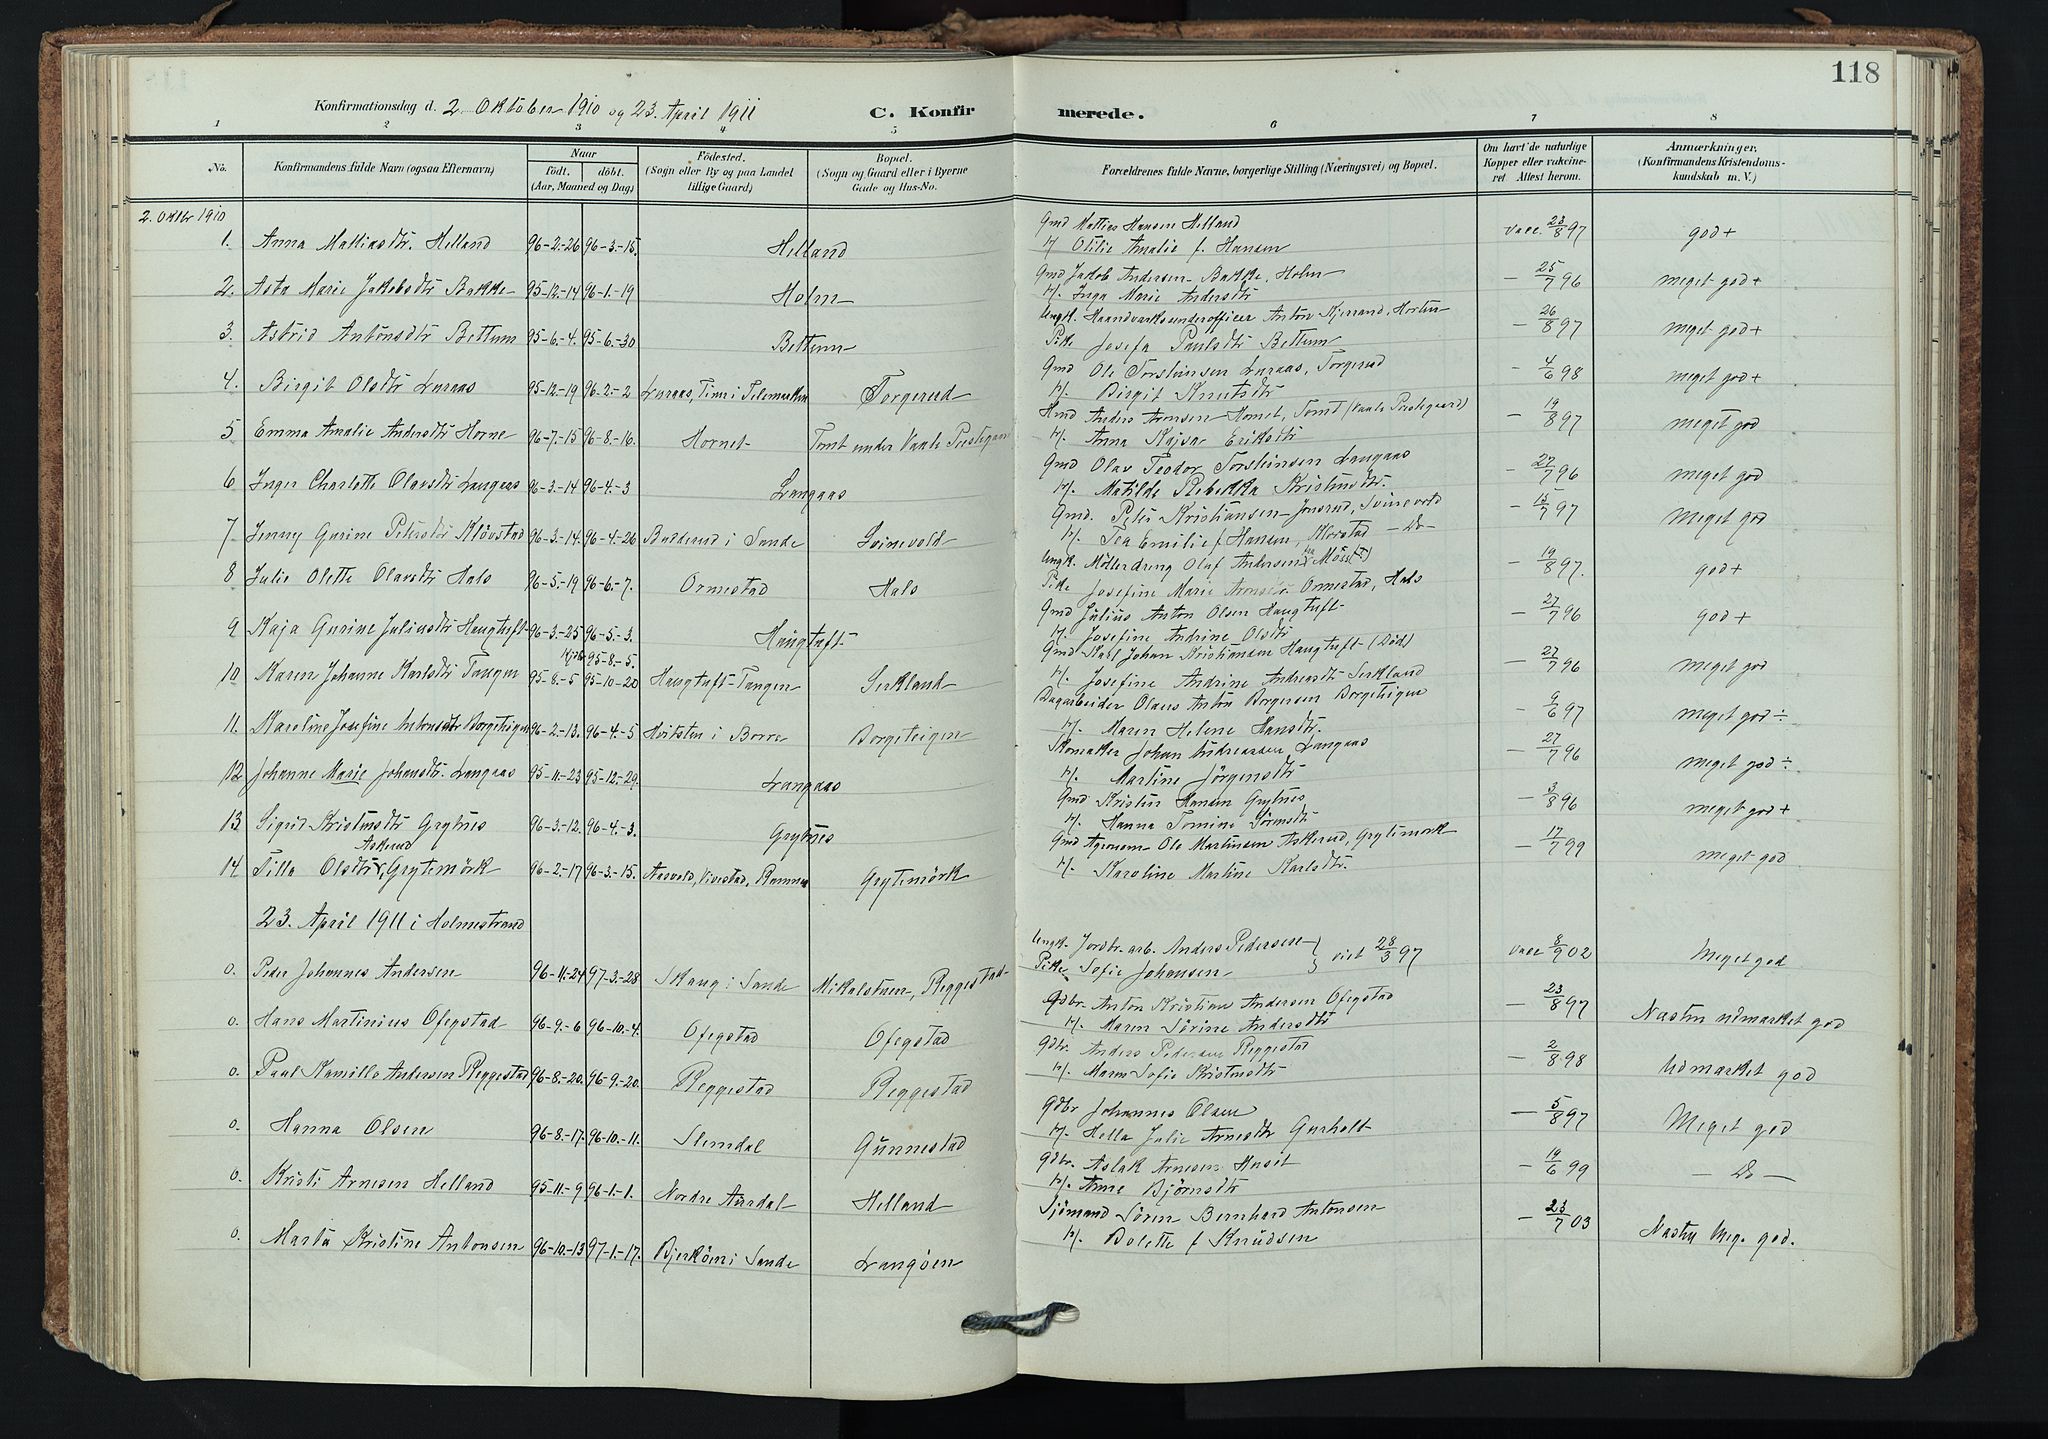 118
Konfirmationsdag d. 2 Oktober 1910 og 23. April 1911 C. Konfirmerede.
1 2 3 4 5 6 7 8
No. Konfirmandens fulde Navn (ogsaa Efternavn) Naar født. døbt. (Aar, Maaned og Dag) Fødested. (Sogn eller By og paa Landet tillige Gaard) Bopæl. (Sogn og Gaard eller i Byerne Gade og Hus-No. Forældrenes fulde Navne, borgerlige Stilling (Næringsvei) og Bopæl. Om havt de naturlige Kopper eller vaccineret. Attest herom. Anmærkninger. (Konfirmandens Kristendomskundskab m. V.)
2. Oktbr 1910
1. Anna Mathiasdtr. Helland 96-2-26 96-3-15. Helland Gmd Mathias Hansen Helland vacc. 23/8 97 god+
H Otilie Amalie f. Hansen
2. Asta Marie Jakobsdtr Bakke 95-12-14 96-1-19 Holm Gmd Jakob Andersen Bakke, Holm - 25/7 96 meget god+
H. Inga Marie Andersdtr
3. Astrid Antonsdtr Bettum 95-6-4. 95-6-30 Bettum Ungk. Haandverksunderofficer Anton Horten - 26/8 97 meget god+
Pike Josefa Paulsdtr Bettum
4. Birgit Olsdtr Luraas 95-12-19 96-2-2 Luraas, Tinn i Telemarken Torgerud Gmd Ole Torsteinsen Luraas, Torgerud - 4/6 98 meget god+
H. Birgit Knutsdtr
5. Emma Amalie Andersdtr Horne 96-7-15 96-8-16. Hornet Tomt under Vaale Prestegaard Hmd Anders Arensen Hornet, Tomt (Vaale Prestegaard) - 19/8 97 meget god
H. Anna Kajsa Eriksdtr
6 Inger Charlotte Olavsdtr Langaas 96-3-14 96-4-3 Langaas Gmd Olav Teodor Torsteinsen Langaas - 27/7 96 meget god
H. Matilde Rebekka Kristensdtr.
7 Jenny Gurine Petersdtr Kløvstad 96-3-14. 96-4-26 i Sande Svinevold Gmd. Peter Kristiansen Jonsrud, Svinevold - 15/7 97 Meget god
H. Tea Emilie f Hansen, Kløvstad - Do -
8 Julie Olette Olavsdtr Hals 96-5-19 96-6-7. Ormestad Hals Ungk. Møllerdreng Olaf Andersen - 19/8 97. god+
Pike Josefine Marie Ormestad, Hals
9 Kaja Gurine Juliusdtr Haugtuft 96-3-25 96-5-3. Haugtuft Gmd Julius Anton Olsen Haugtuft - 27/7 96 god+
H. Josefine Andrine Olsdtr
10 Karen Johanne Karlsdtr Tangen 95-8-5 95-8-5. 95-10-20 Haugtuft-Tangen Serkland Gmd Karl Johan Kristiansen Haugtuft (Død) - 27/7 96 meget god
H. Josefine Andrine Andreasdtr Serkland
11. Karoline Josefine Antonsdtr Borgeteigen 96-2-13. 96-4-5 Hvitsten i Borre Borgeteigen Dagarbeider Olaus Anton Borgersen Borgeteigen - 9/6 97 meget god÷
H. Maren Helene Hansdtr.
12 Johanne Marie Johansdtr. Langaas 95-11-23 95-12-29. Langaas Skomaker Johan Andreassen Langaas - 27/7 96 meget god÷
H. Martine Jørgensdtr
13. Sigrid Kristensdtr Grytnes 96-3-12. 96-4-3. Grytnes Gmd Kristen Hansen Grytnes - 3/8 96 meget god+
H. Hanna Tomine Sørensdtr
Askerud
14 Tilla Olsdtr, Grytemørk 96-2-17 96-3-15. Aasvold, Vivestad, Ramnes Grytemørk Gmd Agronom Ole Martinsen Askerud, Grytemørk - 17/7 99 meget god
H. Karoline Martine Karlsdtr.
23. April 1911 i Holmestrand
0. Peder Johannes Andersen 96-11-24 97-3-28 Skaug i Sande Mikalstuen, Reggestad Ungk. Jordbr. arb. Anders Pedersen } viet 28/3 97 vacc 8/9 02 Meget god
Pike Sofie Johansen
0. Hans Martinius Ofegstad 96-9-6 96-10-4. Ofegstad Ofegstad Gdbr. Anton Kristian Andersen Ofegstad - 23/8 97 Næsten udmærket god
H. Maren Sørine Andersdtr
0. Paul Kamillo Andersen Reggestad 96-8-20. 96-9-20. Reggestad Reggestad Gdbr. Anders Pedersen Reggestad - 2/8 98 Udmærket god
H. Maren Sofie Kristensdtr
0. Hanna Olsen 96-8-17. 96-10-11. Slemdal Gunnestad Gdbr Johannes Olsen - 5/8 97 Meget god
H. Hella Julie Arnesdtr Garholt
0. Kristi Arnesen Helland 95-11-9 96-1-1. Nordre Aurdal Helland Gdbr. Aslak Arnesen Huset - 19/6 99 - Do -
H. Anne Bjørnsdtr
0. Marta Kristine Antonsen 96-10-13 97-1-17. Bjerkøen i Sande Langøen Sjømand Søren Bernhard Antonsen - 23/7 03 Næsten meg. god.
H. Bolette f Knudsen